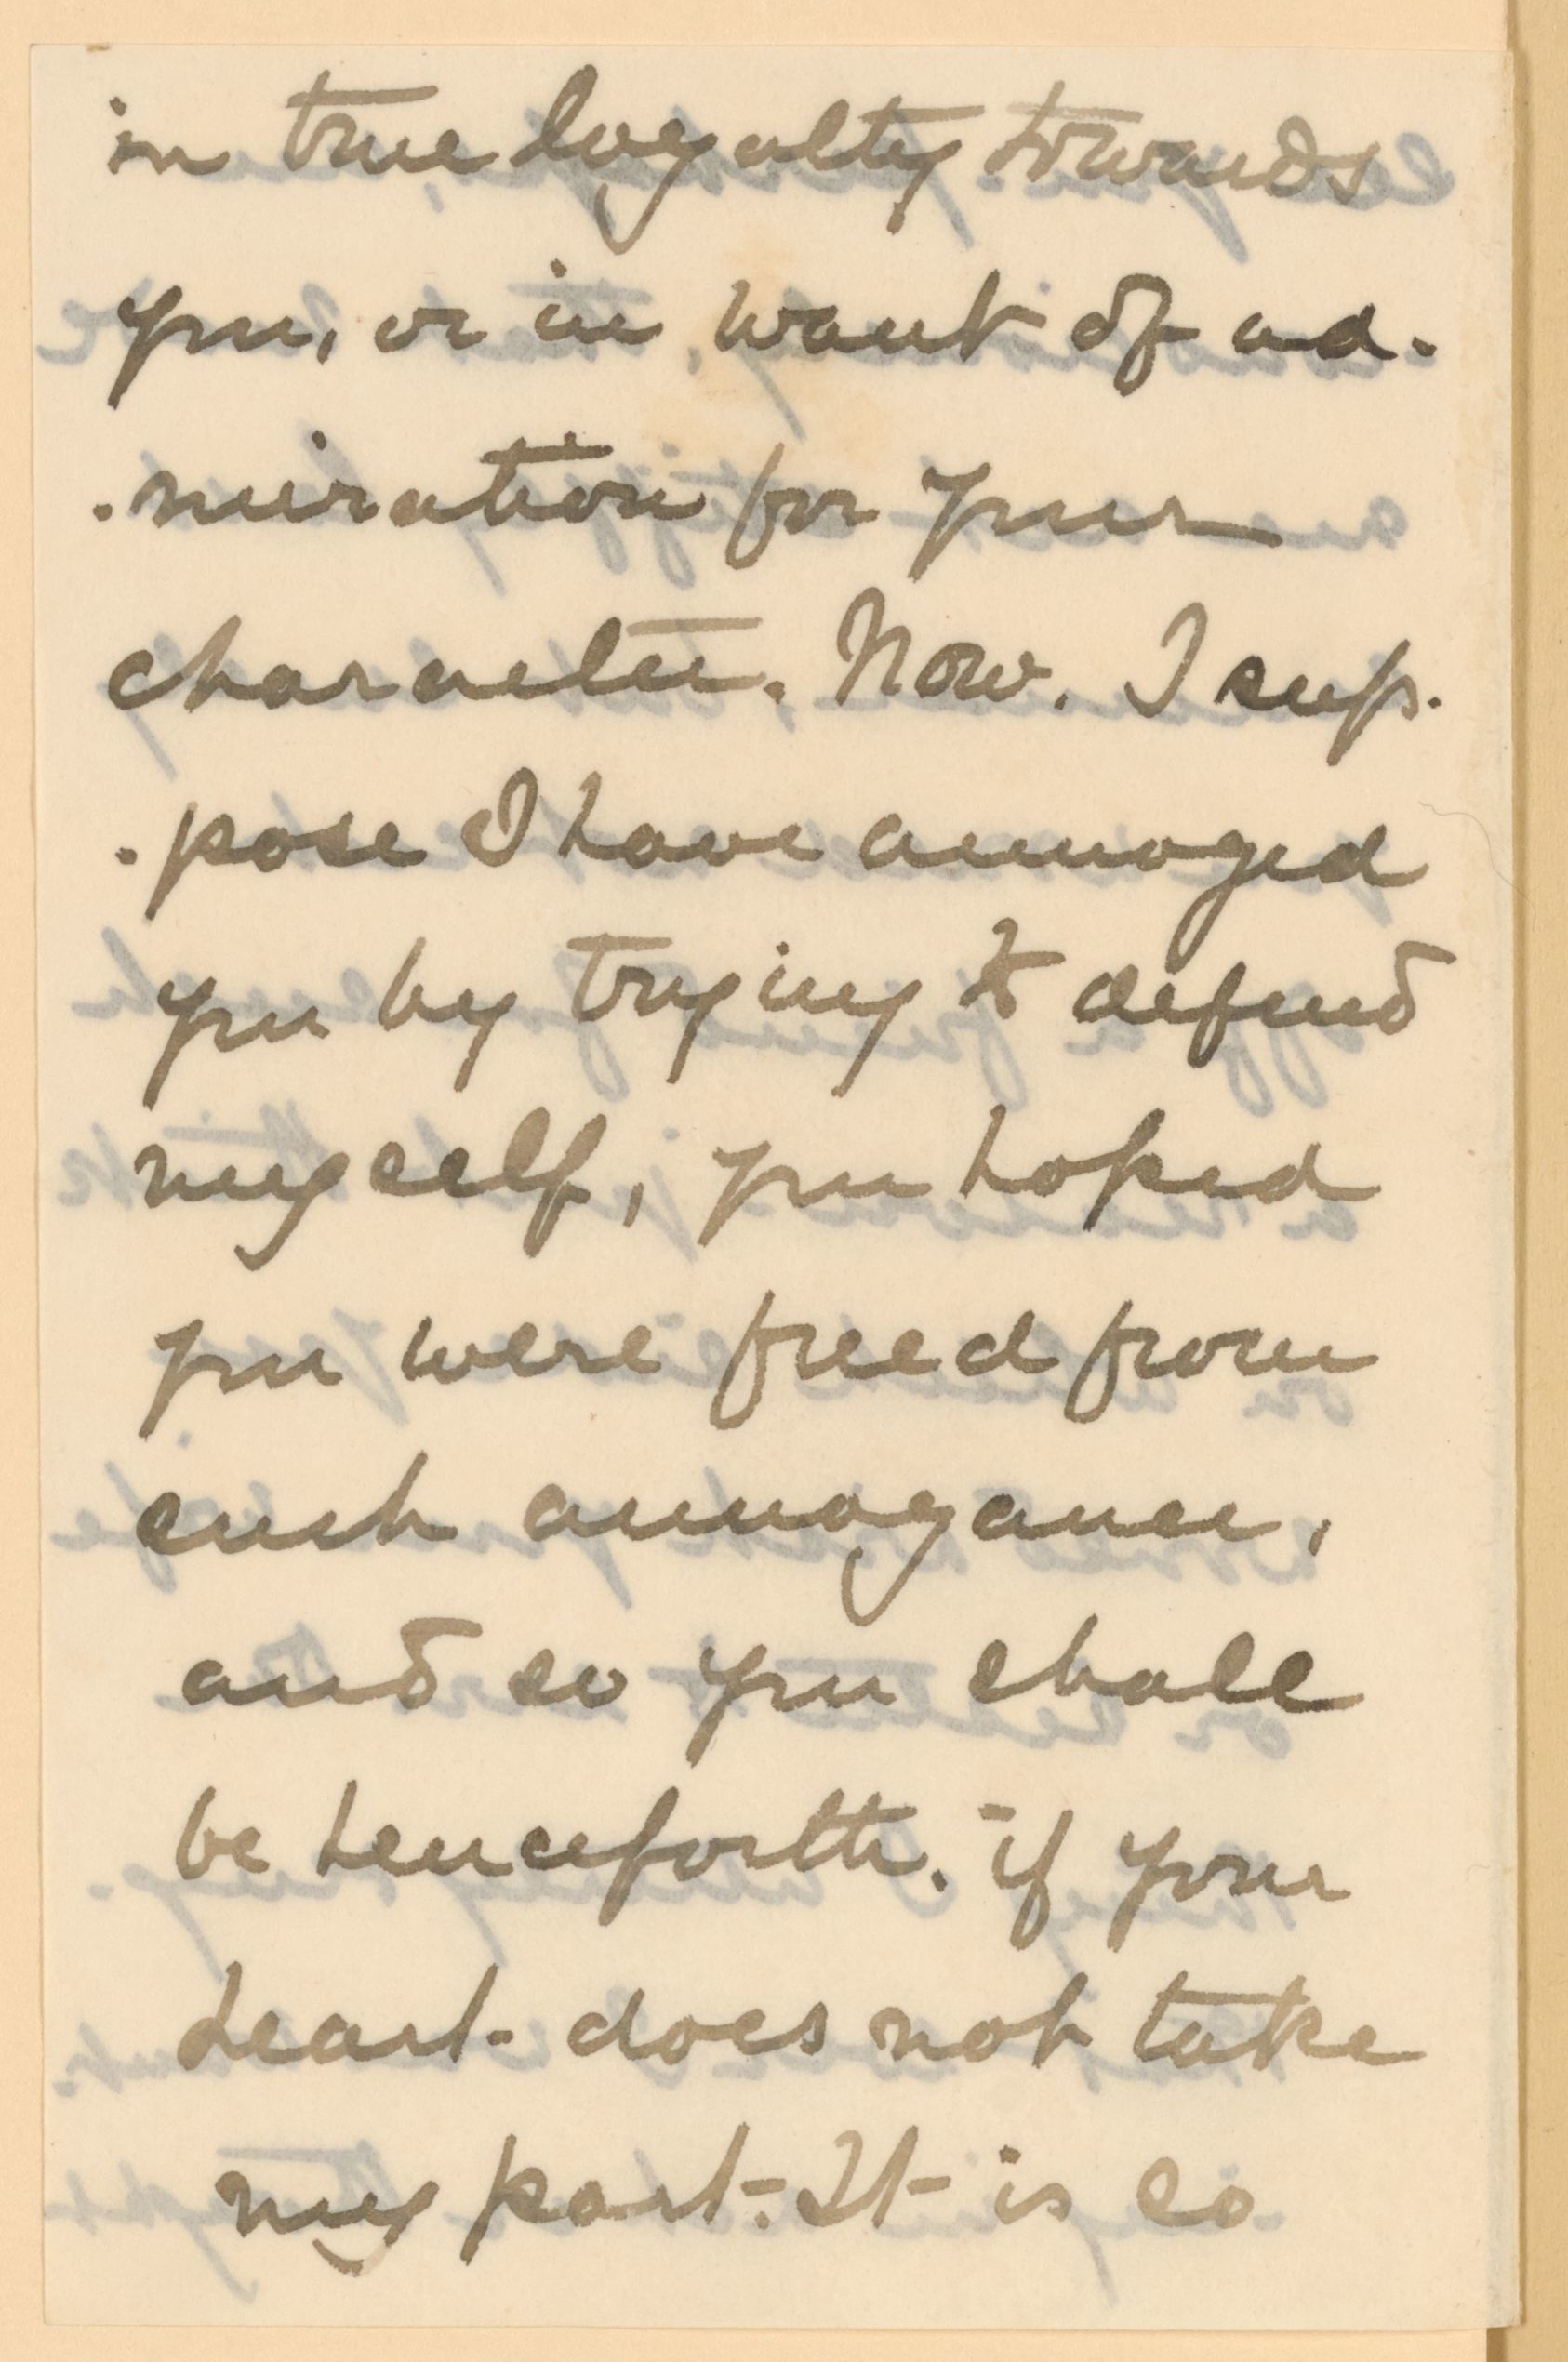 in true loyalty towards
you, or in want of ad-
-miration for your
character. Now, I sup-
-pose I have annoyed
you by trying to defend
myself, you hoped
you were freed from
such annoyance,
and so you shall
be henceforth. if your
heart does not take
my part. It is so